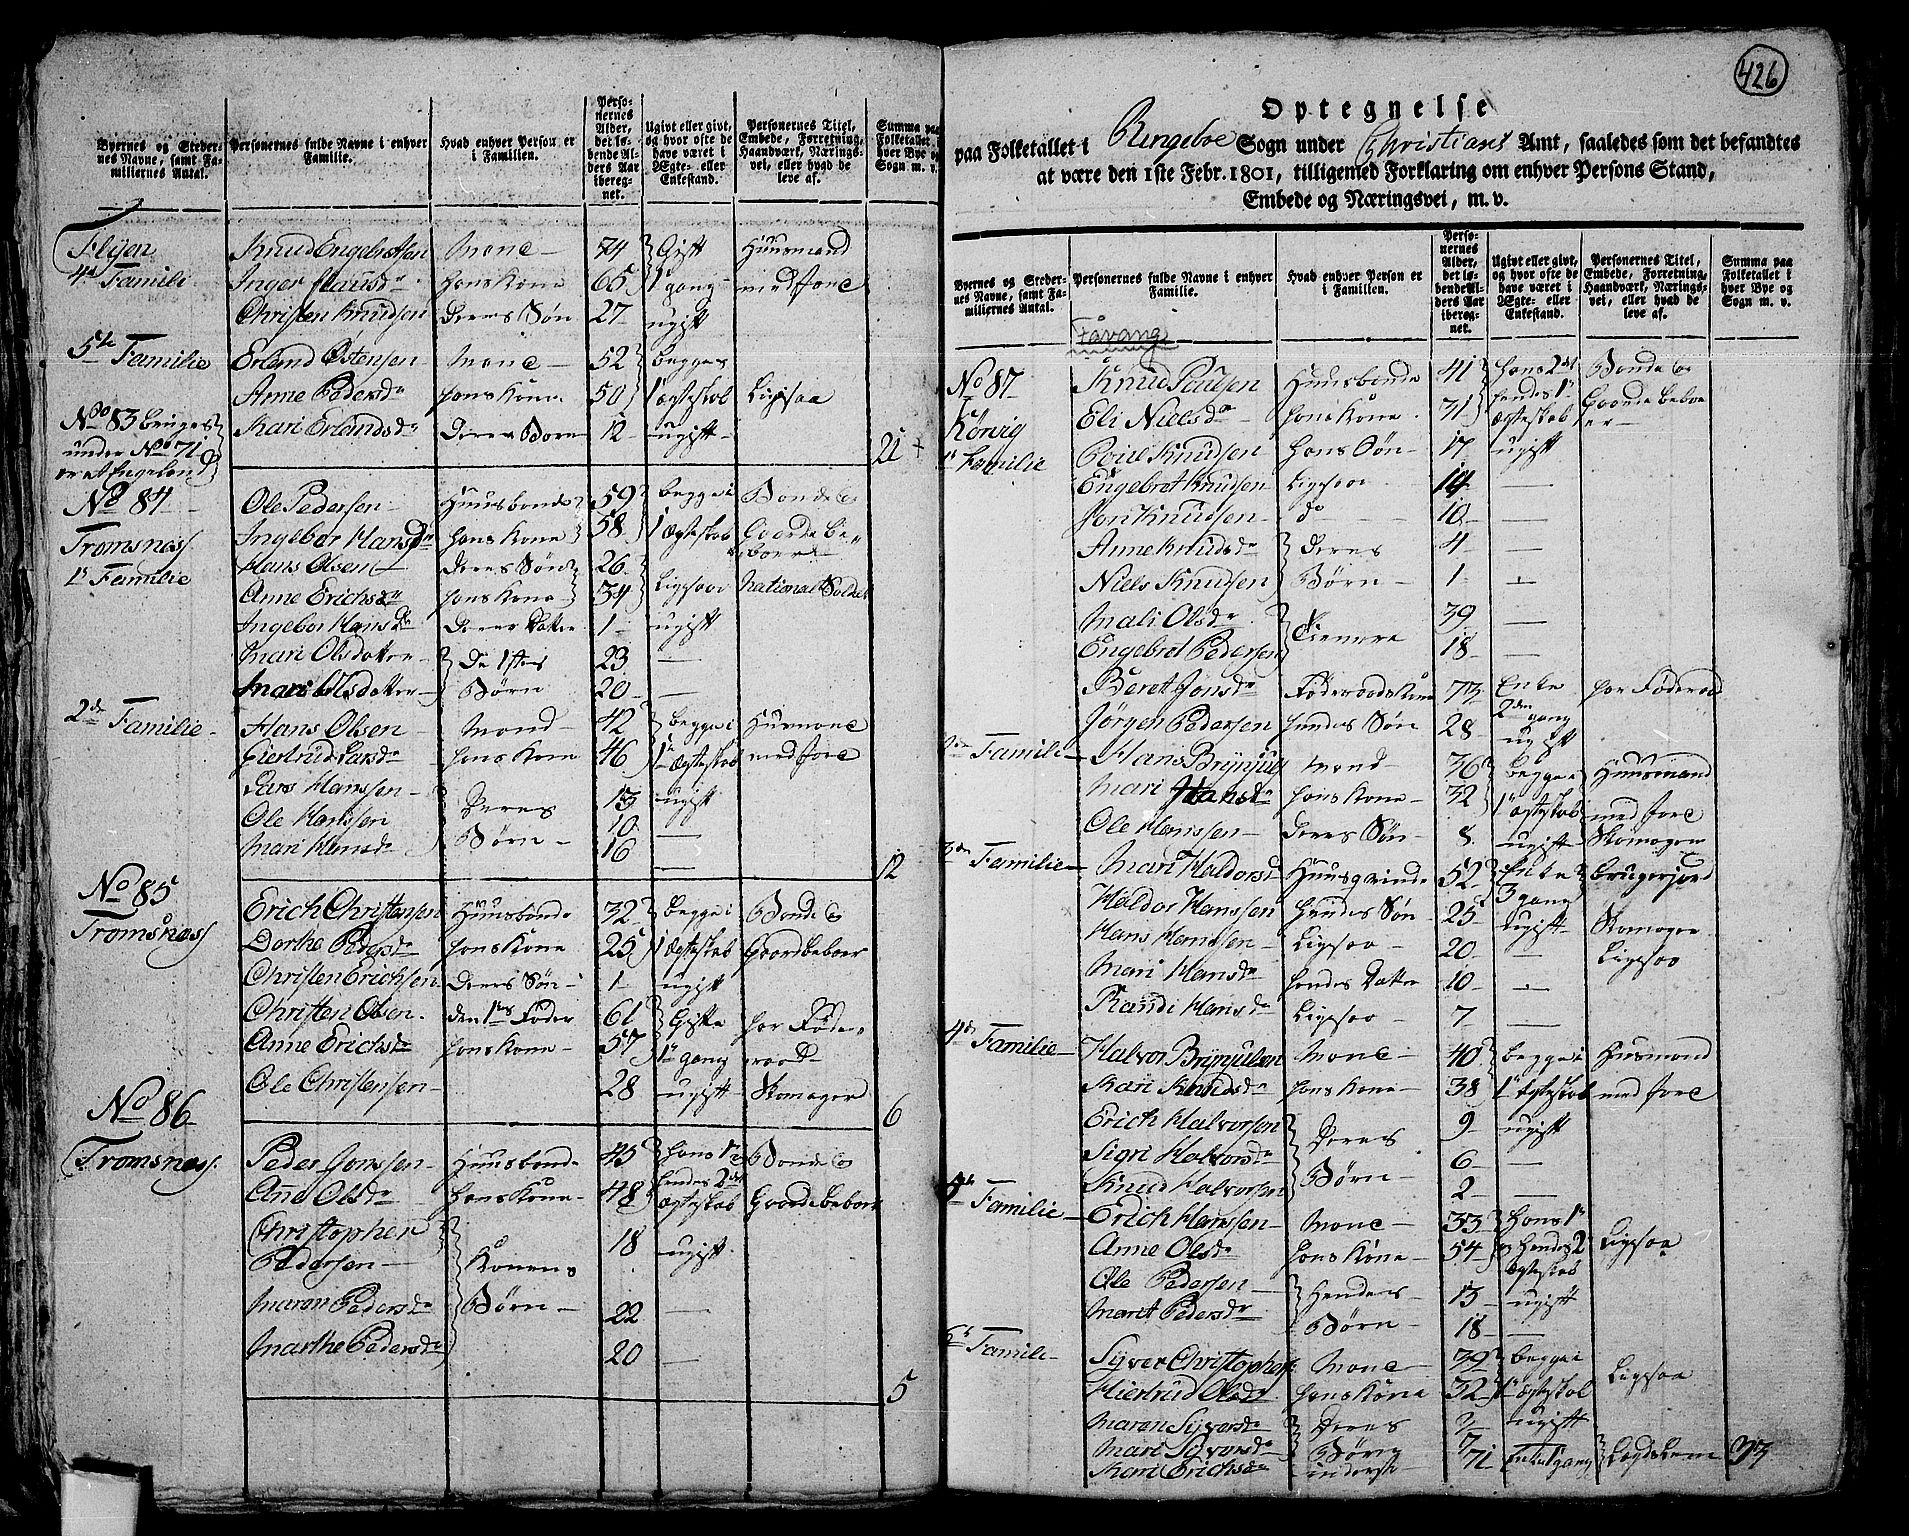 426
Byernes og Steder-
nes Navne, samt Fa-
miliernes Antal.
Personernes fulde Navne i enhver
Familie.
Hvad enhver Person er
i Familien.
Perso-
nernes
Alder,
det lø-
bende Al-
ders Aar
iberег-
net.
Ugivt eller givt,
og hvor ofte de
have været i
Ægte- eller
Enkestand.
Personernes Titel,
Embede, Forretning,
Haandværk, Nærings-
vei, eller hvad de
leve af.
Summa paa
Folketallet i
hver Bye og
Sogn m. v.
Flyen
4de Famili Knud Engebretsen Mand 74 Gift Huusmand
Inger Paulsdr hans Kone 65 1 gang med Jord
Christen Knudsen Deres Søn 27 ugift
5te Familie Erland Østensen Mand 52 begge
Anne Pedersdr hans Kone 50 1 Ægteskab Ligesaa
Kari Erlandsdr Deres Børn 12 ugift 21
No 83 bruges
under No 71
No 84 Ole Pedersen Huusbonde 59 begge i Bonde og
Tromsnæss Ingebor Hansdr hans Kone 58 1 Ægteskab Gaardbeboer
1 Familie Hans Olsen Deres Søn 26
Anne Erichsdr hans Kone 34 Ligesaa National Soldat
Ingebor Hansdr Deres Datter 1 ugift
Mari Olsdatter De 1stes 23
Mari Olsdatter Børn 20
2de Familie Hans Olsen Mand 42 begge i Husmand
Giertrud Larsdr hans Kone 46 1 Ægteskab med Jord
Lars Hanssen Deres 13 ugift
Ole Hanssen Børn 10
Mari Hansdr 16
12
No 85
Tromsnæss Erich Christensen Huusbonde 32 begge i Bonde og
Dorthe Pedersdr hans Kone 25 1 Ægteskab Gaardbeboer
Christen Erichsen Deres Søn 1 ugift
Christen Olsen den 1stes Fader 61 Gifte har Føde-
Anne Erichsdr hans Kone 57 1 gang raad
Ole Christensen 28 ugift Skomager
6
No 86
Tromsnæss Peder Jonssen Huusbonde 45 hans 1 Bonde og
Anne Olsdr hans Kone 48 hendes 2det Ægteskab Gaardbeboer
Christopher
Pedersen Konens 18 ugift
Maren Pedersdr Børn 22
Marthe Pedersdr 20
5
Optegnelse
paa Folketallet i Ringeboe Sogn under Christians Amt, saaledes som det befandtes
at være den 1ste Febr. 1801, tilligemed Forklaring om enhver Persons Stand,
Embede og Næringsvei, m. v.
Byernes og Steder-
nes Navne, samt Fa-
miliernes Antal.
Personernes fulde Navne i enhver
Familie.
Hvad enhver Person er
i Familien.
Perso-
nernes
Alder,
det lø-
bende Al-
ders Aar
iberег-
net.
Ugivt eller givt,
og hvor ofte de
have været i
Ægte- eller
Enkestand.
Personernes Titel,
Embede, Forretning,
Haandværk, Nærings-
vei, eller hvad de
leve af.
Summa paa
Folketallet i
hver Bye og
Sogn m. v.
Fåvang
No 87 Knud Poulsen Huusbonde 41 hans 2det Bonde og
Kørvig Eli Nielsdr hans Kone 31 hendes 1 Ægteskab Gaardbeboer
1 Familie Poul Knudsen Hans Søn 17 ugift
Engebret Knudsen Ligesaa 14
Jon Knudsen do 10
Anne Knudsdr Deres 4
Niels Knudsen Børn 1
Mali Olsdr Tienere 39
Engebret Pedersen 18
Beret Jonsdr Føderaads Kone 73 Enke 2den gang har Føderaad
Jørgen Pedersen hendes Søn 28 ugift
2den Familie Hans Brynjuls Mand 36 begge i Huusmand
Mari Hansdr hans Kone 32 1 Ægteskab med Jord
Ole Hanssen Deres Søn 8 ugift Skomager
3de Familie Mari Haldorsdr Huusqvinde 52 Enke 3 gang bruger jord
Haldor Hanssen Hendes Søn 25 ugift Skomager
Hans Hanssen Ligesaa 20 Ligesaa
Mari Hansdr hendes Datter 10
Randi Hansdr Ligesaa 7
4de Familie Halvor Brynjulsen Mand 40 begge i Husmand
Kari Knudsdr hans Kone 38 1 Ægteskab med Jord
Erich Halvorsen Deres 9 ugift
Sigri Halvorsdr Børn 6
Knud Halvorsen 2
5te Familie Erich Hanssen Mand 33 Hans 1
Anne Olsdr hans Kone 54 og Hendes 2 Ægteskab Ligesaa
Ole Pedersen Hendes 13 ugift
Maret Pedersdr Børn 18
6te Famili Syver Christophers Mand 39 begge i Ligesaa
Hiertrud Olsdr hans Kone 32 1 Ægteskab
Maren Syversdr Deres ugift
Mari Syversdr Børn 7
Kari Erichsdr inderst 71 Enke 1 gang Lægdslem 33